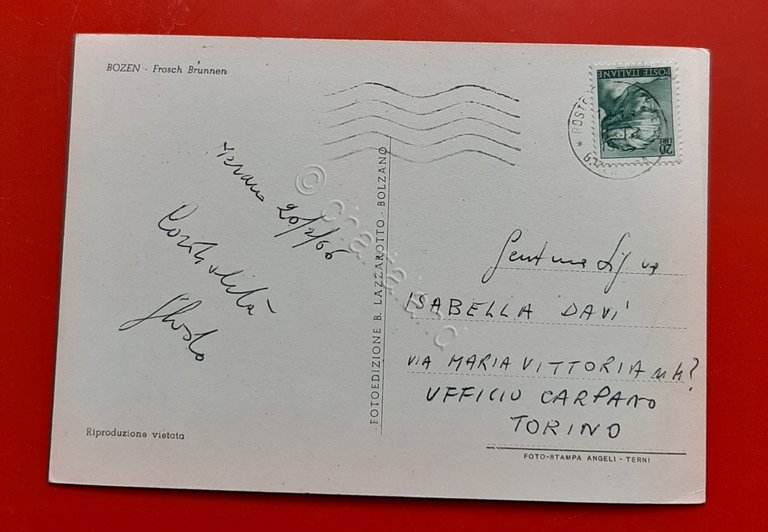 BOZEN - Frosch Brunnen
POSTE ITALIANE
20
LIRE
Merano 20/2/66
Cordialità
FOTOEDIZIONE B. LAZZAROTTO - BOLZANO
Gent.ma Sig.na
ISABELLA DAVI'
VIA MARIA VITTORIA
UFFICIO CARPANO
TORINO
Riproduzione vietata
FOTO-STAMPA ANGELI - TERNI